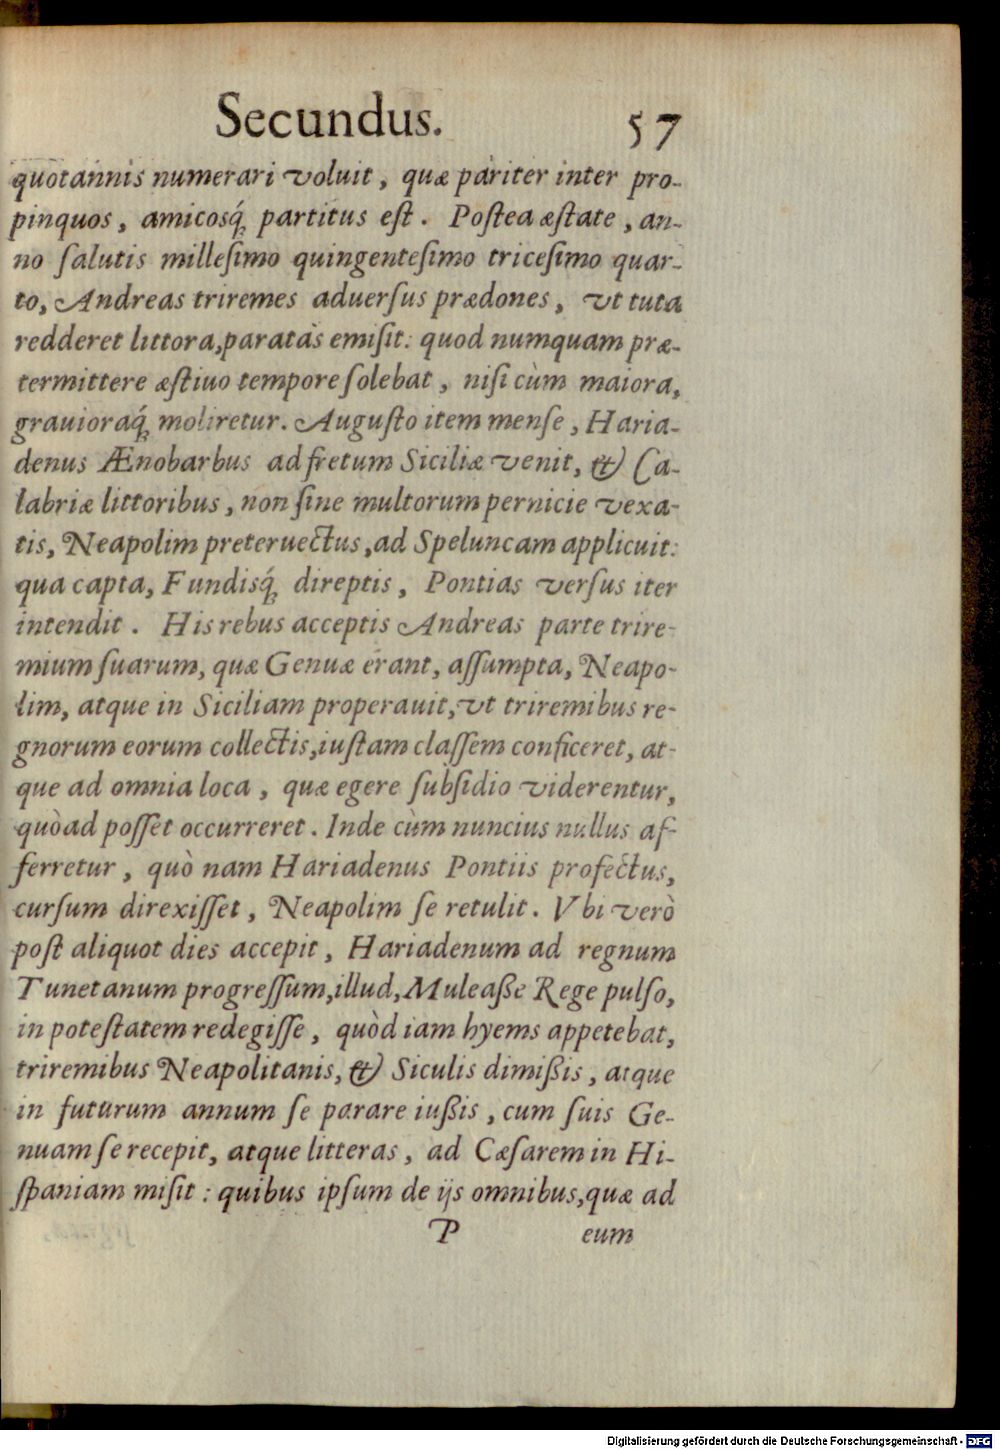 Secundus. 57
quotannis numerari voluit, quæ pariter inter pro-
pinquos, amicosq́; partitus eſt. Poſtea æſtate, an-
no ſalutis milleſimo quingenteſimo triceſimo quar-
to, Andreas triremes aduerſus prædones, vt tuta
redderet littora, paratas emiſit: quod numquam præ-
termittere æſtiuo tempore ſolebat, niſi cùm maiora,
grauioraq́; moliretur. Auguſto item menſe, Haria-
denus Ænobarbus ad fretum Siciliæ venit, & Ca-
labriæ littoribus, non ſine multorum pernicie vexa-
tis, Neapolim preteruectus, ad Speluncam applicuit:
qua capta, Fundisq́; direptis, Pontias verſus iter
intendit. His rebus acceptis Andreas parte trire-
mium ſuarum, quæ Genuæ erant, aſſumpta, Neapo-
lim, atque in Siciliam properauit, vt triremibus re-
gnorum eorum collectis, iuſtam claſſem conficeret, at-
que ad omnia loca, quæ egere ſubſidio viderentur,
quòad poſſet occurreret. Inde cùm nuncius nullus af-
ferretur, quò nam Hariadenus Pontiis profectus,
curſum direxiſſet, Neapolim ſe retulit. Vbi verò
poſt aliquot dies accepit, Hariadenum ad regnum
Tunetanum progreſſum, illud, Muleaße Rege pulſo,
in poteſtatem redegiſſe, quòd iam hyems appetebat,
triremibus Neapolitanis, & Siculis dimißis, atque
in futurum annum ſe parare iußis, cum ſuis Ge-
nuam ſe recepit, atque litteras, ad Cæſarem in Hi-
ſpaniam miſit: quibus ipſum de ijs omnibus, quæ ad
P eum
Digitalisierung gefördert durch die Deutsche Forschungsgemeinschaft - DFG